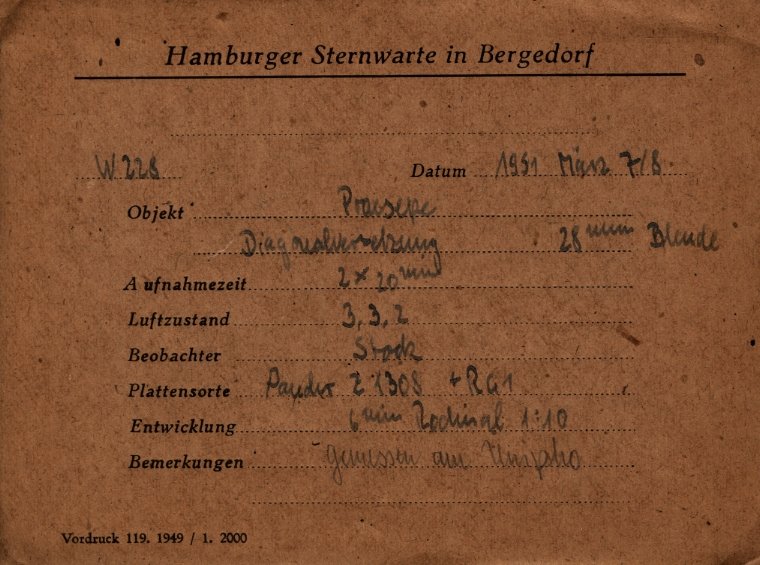 Hamburger Sternwarte in Bergedorf
W 228 Datum 1951 März 7/8
Objekt Praesepe
Diagonalversetzung 28 mm Blende
Aufnahmezeit 2 x 20 min
Luftzustand 3, 3, 2
Beobachter Stock
Plattensorte + RG1
Entwicklung 6 min Rodinal 1:10
Bemerkungen gemessen am
Vordruck 119. 1949 / 1. 2000